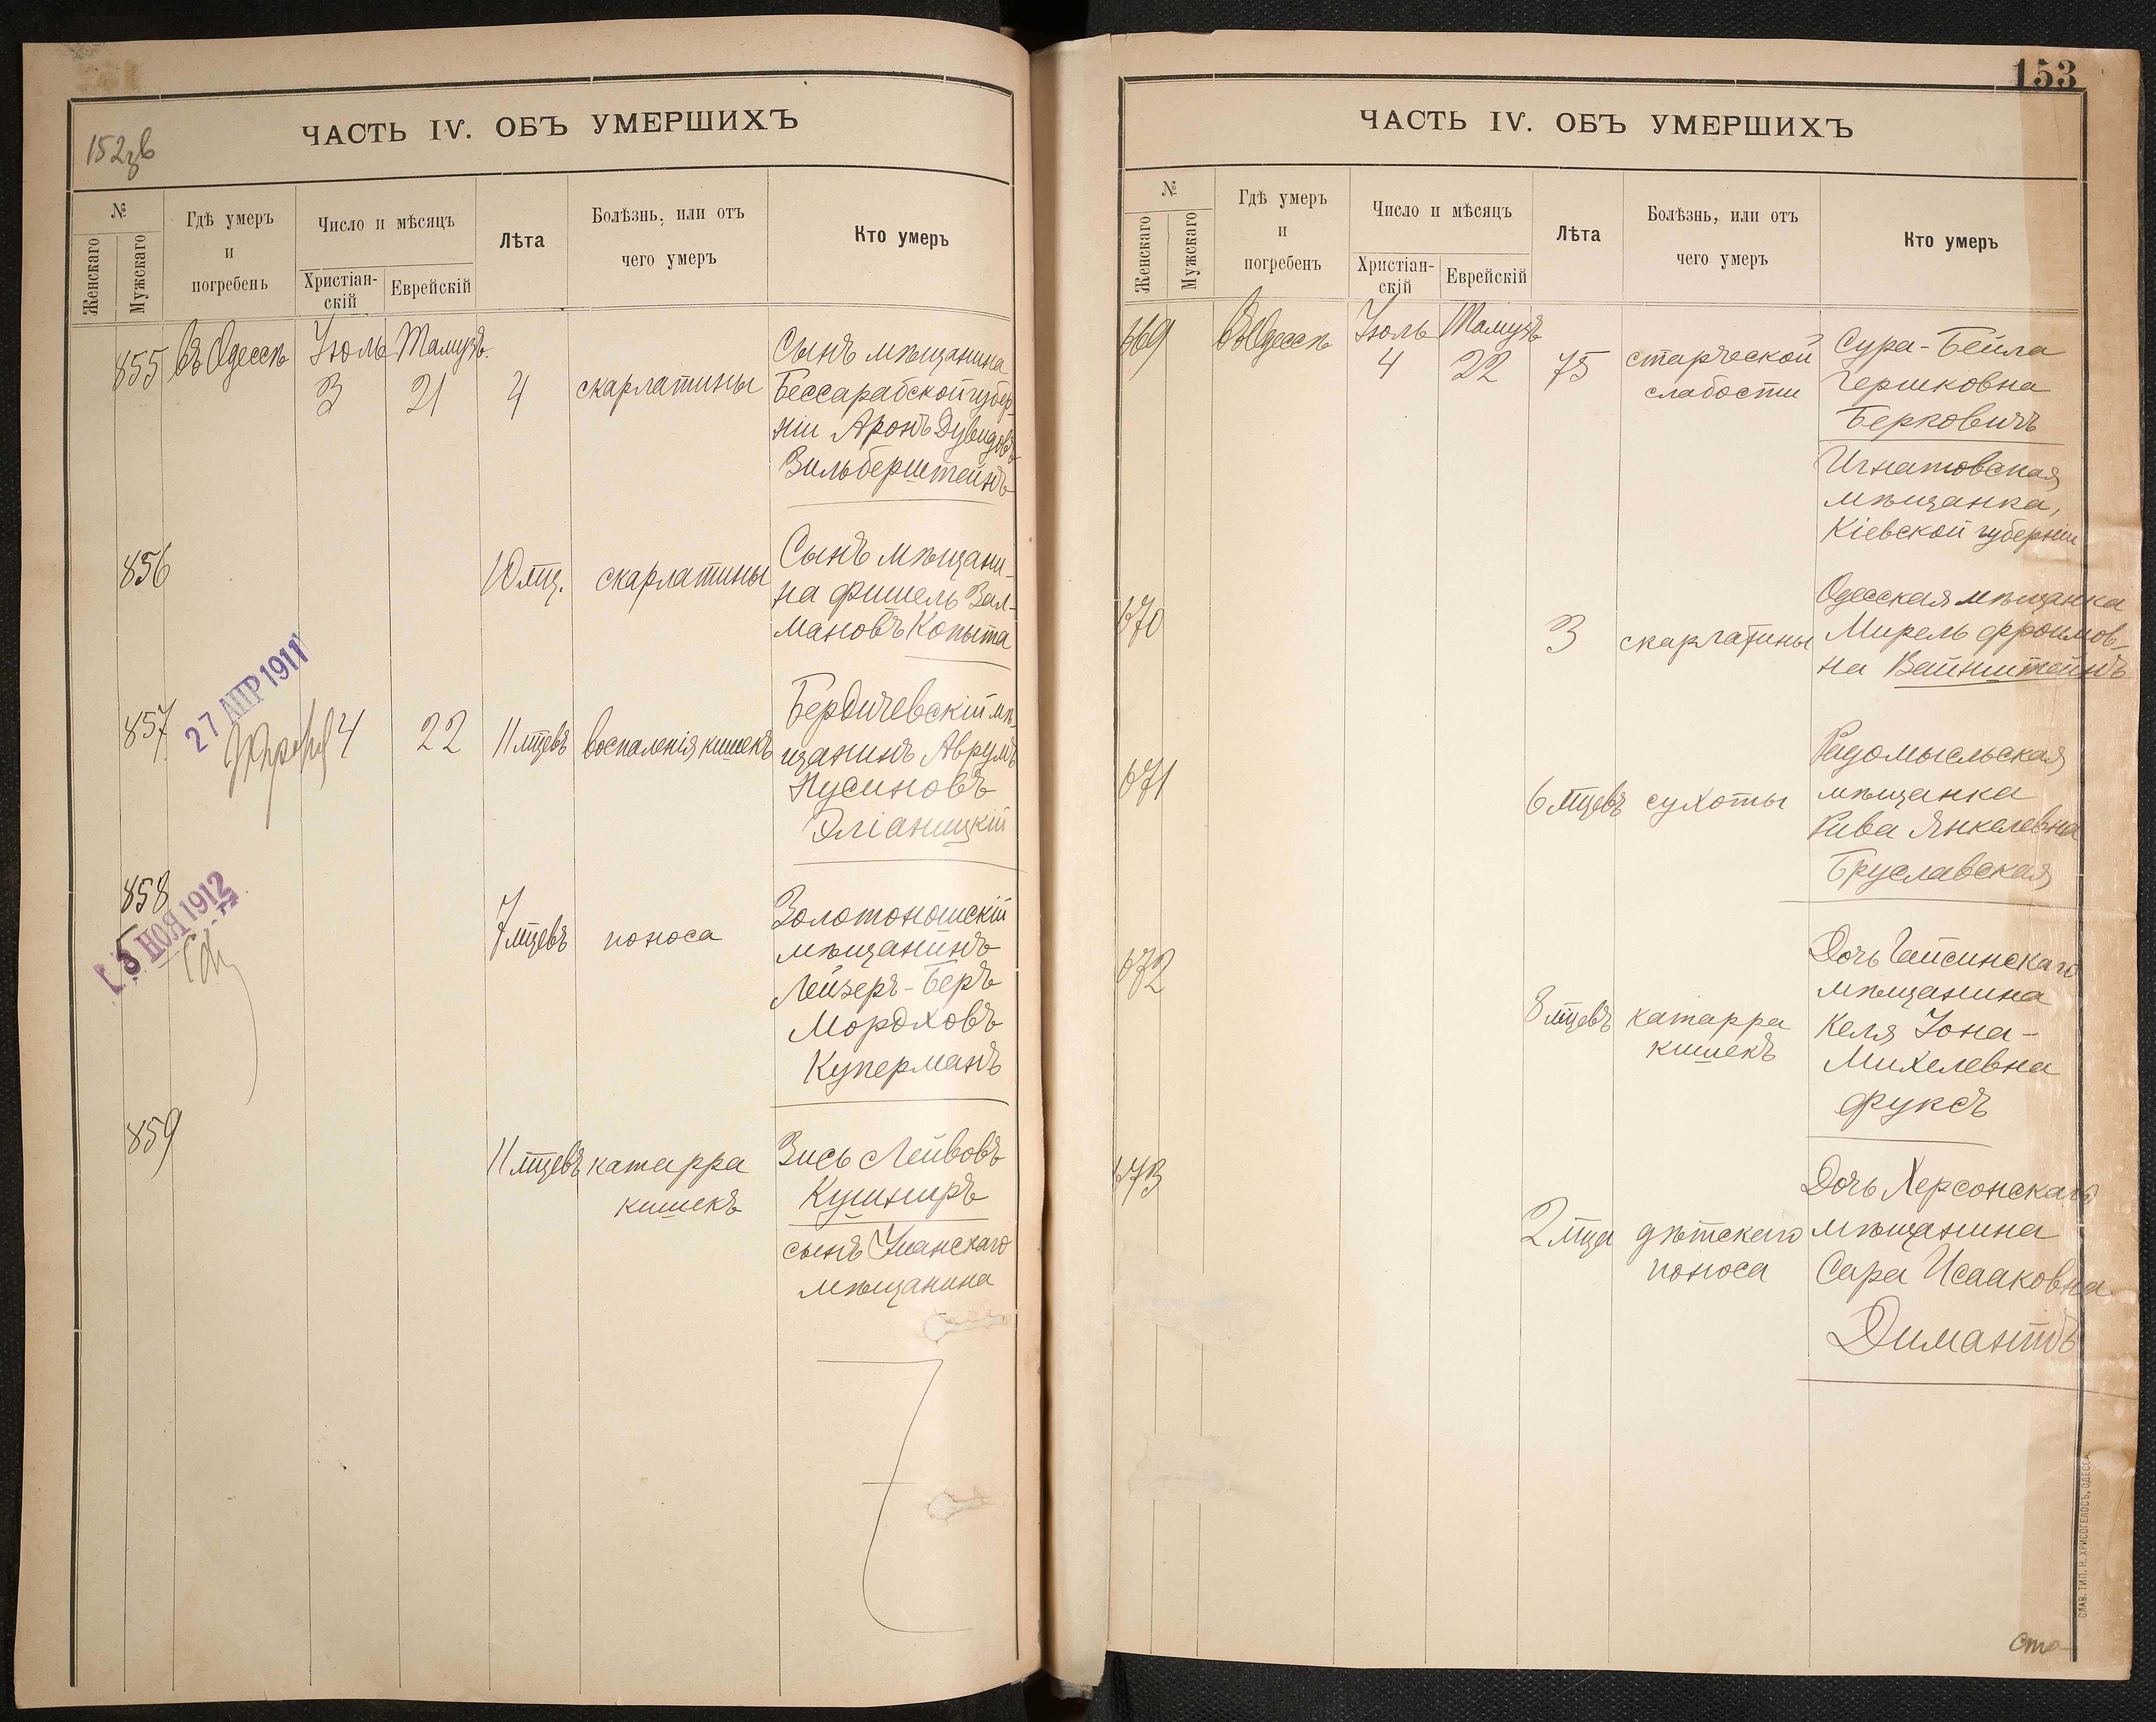 152зв
ЧАСТЬ IV. ОБЪ УМЕРШИХЪ
№
Женскаго
Мужскаго
Гдѣ умеръ
и
погребенъ
Число и мѣсяцъ
Христіан-
скій
Еврейскій
Лѣта
Болѣзнь, или отъ
чего умеръ
Кто умеръ
855 Въ Одессѣ Іюль Тамузъ.
3 21 4 скарлатины
Сынъ мѣщанина
Бессарабской губер-
ніи Аронъ Дувидовъ
Зильберштейнъ
856 10 мц. скарлатины
Сынъ мѣщани-
на Фишель Зал-
мановъ Копыта
27 АПР 1911
857 4 22 11 мцевъ воспаленія кишекъ
Бердичевскій мѣ-
щанинъ Аврумъ
Нусиновъ
858 7 мцевъ поноса
5 НОЯ 1912
Золотоношскій
мѣщанинъ
Лейзеръ-Беръ
Мордховъ
Куперманъ
859 11 мцевъ катарра
кишекъ
Зись Лейвовъ
Кушниръ
сынъ Уманскаго
мѣщанина
153
ЧАСТЬ IV. ОБЪ УМЕРШИХЪ
№
Женскаго
Мужскаго
Гдѣ умеръ
и
погребенъ
Число и мѣсяцъ
Христіан-
скій
Еврейскій
Лѣта
Болѣзнь, или отъ
чего умеръ
Кто умеръ
669 Въ Одессѣ Іюль Тамузъ
4 22 75 старческой
слабости
Сура-Бейла
Гершковна
Берковичъ
Игнатовская
мѣщанка,
Кіевской губерніи
670 3 скарлатины
Одесская мѣщанка
Мирель Фроимов-
на Вайнштейнъ
671 6 мцевъ сухоты
Радомысльская
мѣщанка
Рива Янкелевна
Бруславская
672 8 мцевъ катарра
кишекъ
Дочь Гайсинскаго
мѣщанина
Келя Іона-
Михелевна
Фуксъ
673 2 мца дѣтскаго
поноса
Дочь Херсонскаго
мѣщанина
Сара Исааковна
Димантъ
СЛАВ. ТИП. Н. ХРИСОГЕЛОСЪ, ОДЕССА
Сто-